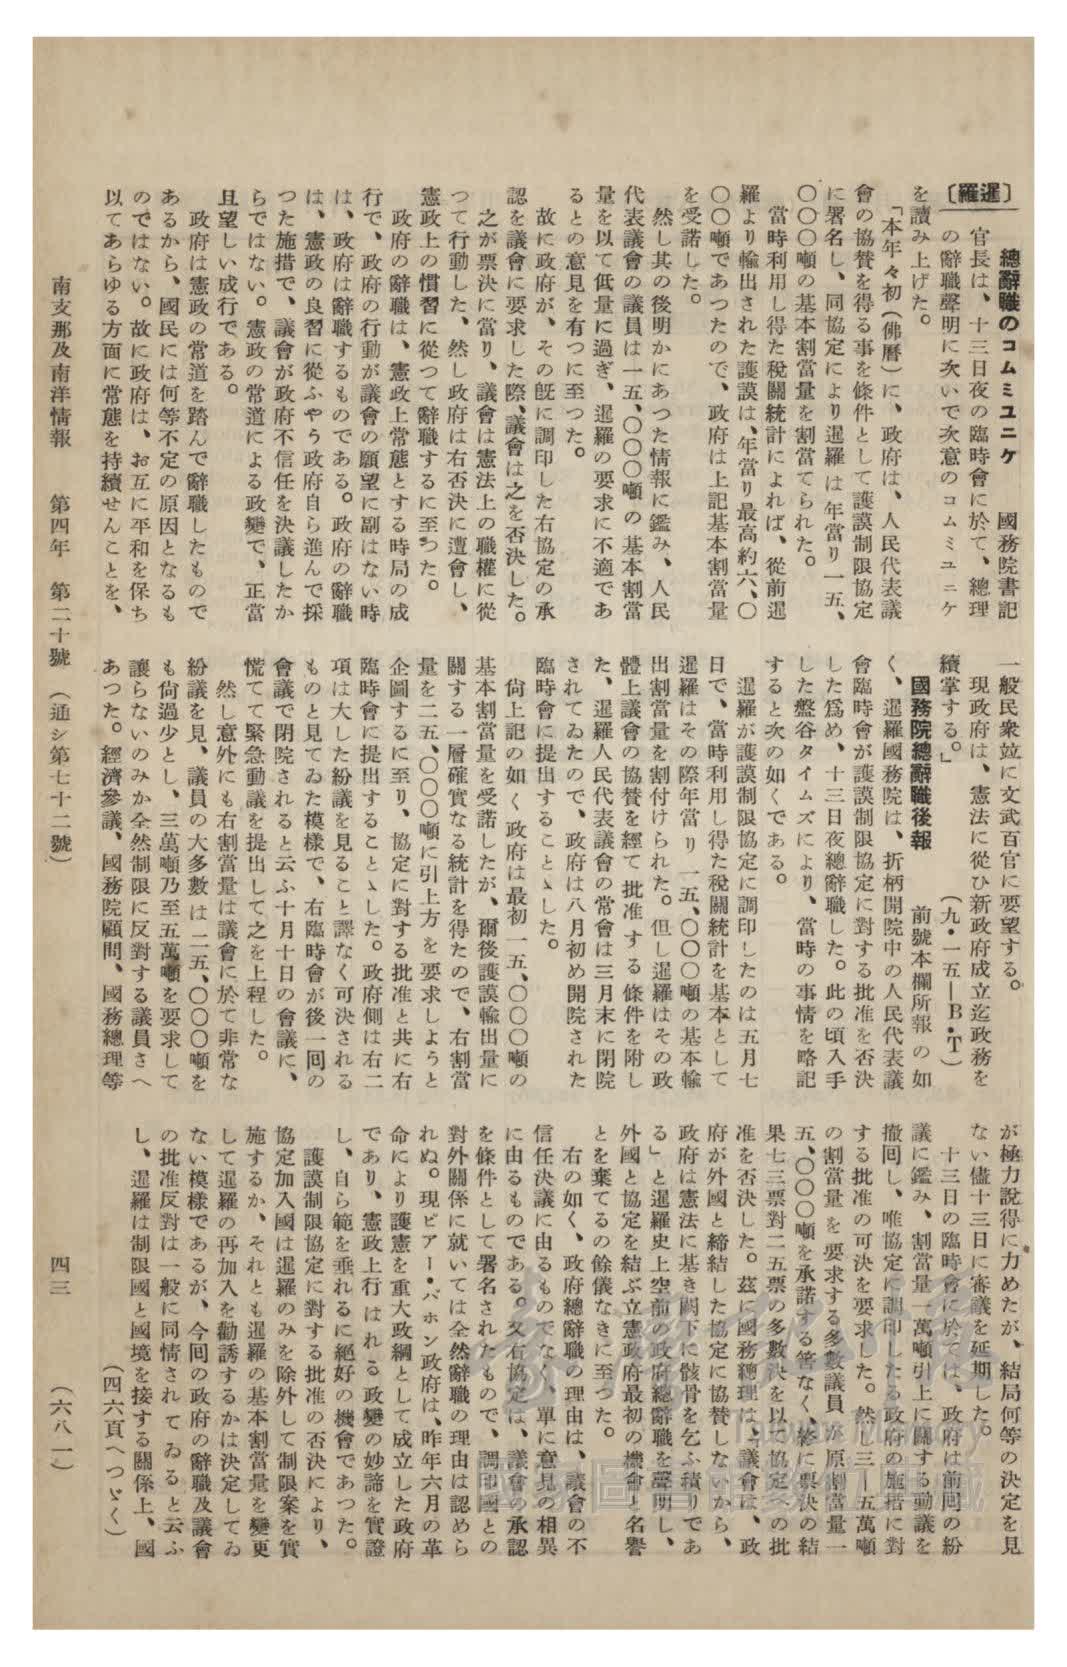 〔暹羅〕
總辭職のコムミユニケ　　國務院書記
官長は、十三日夜の臨時會に於て、總理
の辭職聲明に次いで次意のコムミユニケ
を讀み上げた。
「本年々初（佛曆）に、政府は、人民代表議
會の協賛を得る事を條件として護謨制限協定
に署名し、同協定により暹羅は年當り一五、
〇〇〇噸の基本割當量を割當てられた。
當時利用し得た稅關統計によれば、從前暹
羅より輸出された護謨は、年當り最高約六、〇
〇〇噸であつたので、政府は上記基本割當量
を受諾した。
然し其の後明かにあつた情報に鑑み、人民
代表議會の議員は一五、〇〇〇噸の基本割當
量を以て低量に過ぎ、暹羅の要求に不適であ
るとの意見を有つに至つた。
故に政府が、その既に調印した右協定の承
認を議會に要求した際、議會は之を否決した。
之が票決に當り、議會は憲法上の職權に從
つて行動した、然し政府は右否決に遭會し、
憲政上の慣習に從つて辭職するに至つた。
政府の辭職は、憲政上常態とする時局の成
行で、政府の行動が議會の願望に副はない時
は、政府は辭職するものである。政府の辭職
は、憲政の良習に從ふやう政府自ら進んで採
つた施措で、議會が政府不信任を決議したか
らではない。憲政の常道による政變で、正當
且望しい成行である。
政府は憲政の常道を踏んで辭職したもので
あるから、國民には何等不定の原因となるも
のではない。故に政府は、お互に平和を保ち
以てあらゆる方面に常態を持續せんことを、
一般民衆竝に文武百官に要望する。
現政府は、憲法に從ひ新政府成立迄政務を
續掌する。」　　　　　（九・一五―B・T）
國務院總辭職後報　　前號本欄所報の如
く、暹羅國務院は、折柄開院中の人民代表議
會臨時會が護謨制限協定に對する批准を否決
した爲め、十三日夜總辭職した。此の頃入手
した盤谷タイムズにより、當時の事情を略記
すると次の如くである。
暹羅が護謨制限協定に調印したのは五月七
日で、當時利用し得た稅關統計を基本として
暹羅はその際年當り一五、〇〇〇噸の基本輸
出割當量を割付けられた。但し暹羅はその政
體上議會の協賛を經て批准する條件を附し
た、暹羅人民代表議會の常會は三月末に閉院
されてゐたので、政府は八月初め開院された
臨時會に提出することゝした。
尙上記の如く政府は最初一五、〇〇〇噸の
基本割當量を受諾したが、爾後護謨輸出量に
關する一層確實なる統計を得たので、右割當
量を二五、〇〇〇噸に引上方を要求しようと
企圖するに至り、協定に對する批准と共に右
臨時會に提出することゝした。政府側は右二
項は大した紛議を見ること譯なく可決される
ものと見てゐた模樣で、右臨時會が後一回の
會議で閉院されると云ふ十月十日の會議に、
慌てて緊急動議を提出して之を上程した。
然し意外にも右割當量は議會に於て非常な
紛議を見、議員の大多數は二五、〇〇〇噸を
も尙過少とし、三萬噸乃至五萬噸を要求して
讓らないのみか全然制限に反對する議員さへ
あつた。經濟參議、國務院顧問、國務總理等
が極力說得に力めたが、結局何等の決定を見
ない儘十三日に審議を延期した。
十三日の臨時會に於ては、政府は前回の紛
議に鑑み、割當量一萬噸引上に關する動議を
撤回し、唯協定に調印したる政府の施措に對
する批准の可決を要求した。然し三―五萬噸
の割當量を要求する多數議員が原割當量一
五、〇〇〇噸を承諾する筈なく、終に票決の結
果七三票對二五票の多數決を以て協定への批
准を否決した。玆に國務總理は、「議會は、政
府が外國と締結した協定に協賛しないから、
政府は憲法に基き闕下に骸骨を乞ふ積りであ
る」と暹羅史上空前の政府總辭職を聲明し、
外國と協定を結ぶ立憲政府最初の機會と名譽
とを棄てるの餘儀なきに至つた。
右の如く、政府總辭職の理由は、議會の不
信任決議に由るものでなく、單に意見の相異
に由るものである。又右協定は、議會の承認
を條件として署名されたもので、調印國との
對外關係に就いては全然辭職の理由は認めら
れぬ。現ビアー・バホン政府は、昨年六月の革
命により護憲を重大政綱として成立した政府
であり、憲政上行はれる政變の妙諦を實證
し、自ら範を垂れるに絕好の機會であつた。
護謨制限協定に對する批准の否決により、
協定加入國は暹羅のみを除外して制限案を實
施するか、それとも暹羅の基本割當量を變更
して暹羅の再加入を勸誘するかは決定してゐ
ない模樣であるが、今回の政府の辭職及議會
の批准反對は一般に同情されてゐると云ふ
し、暹羅は制限國と國境を接する關係上、國
（四六頁へつゞく）
南支那及南洋情報　　第四年　第二十號　（通シ第七十二號）　　四三　　（六八一）
臺灣記憶
Taiwan Memory
國家圖書館數位典藏